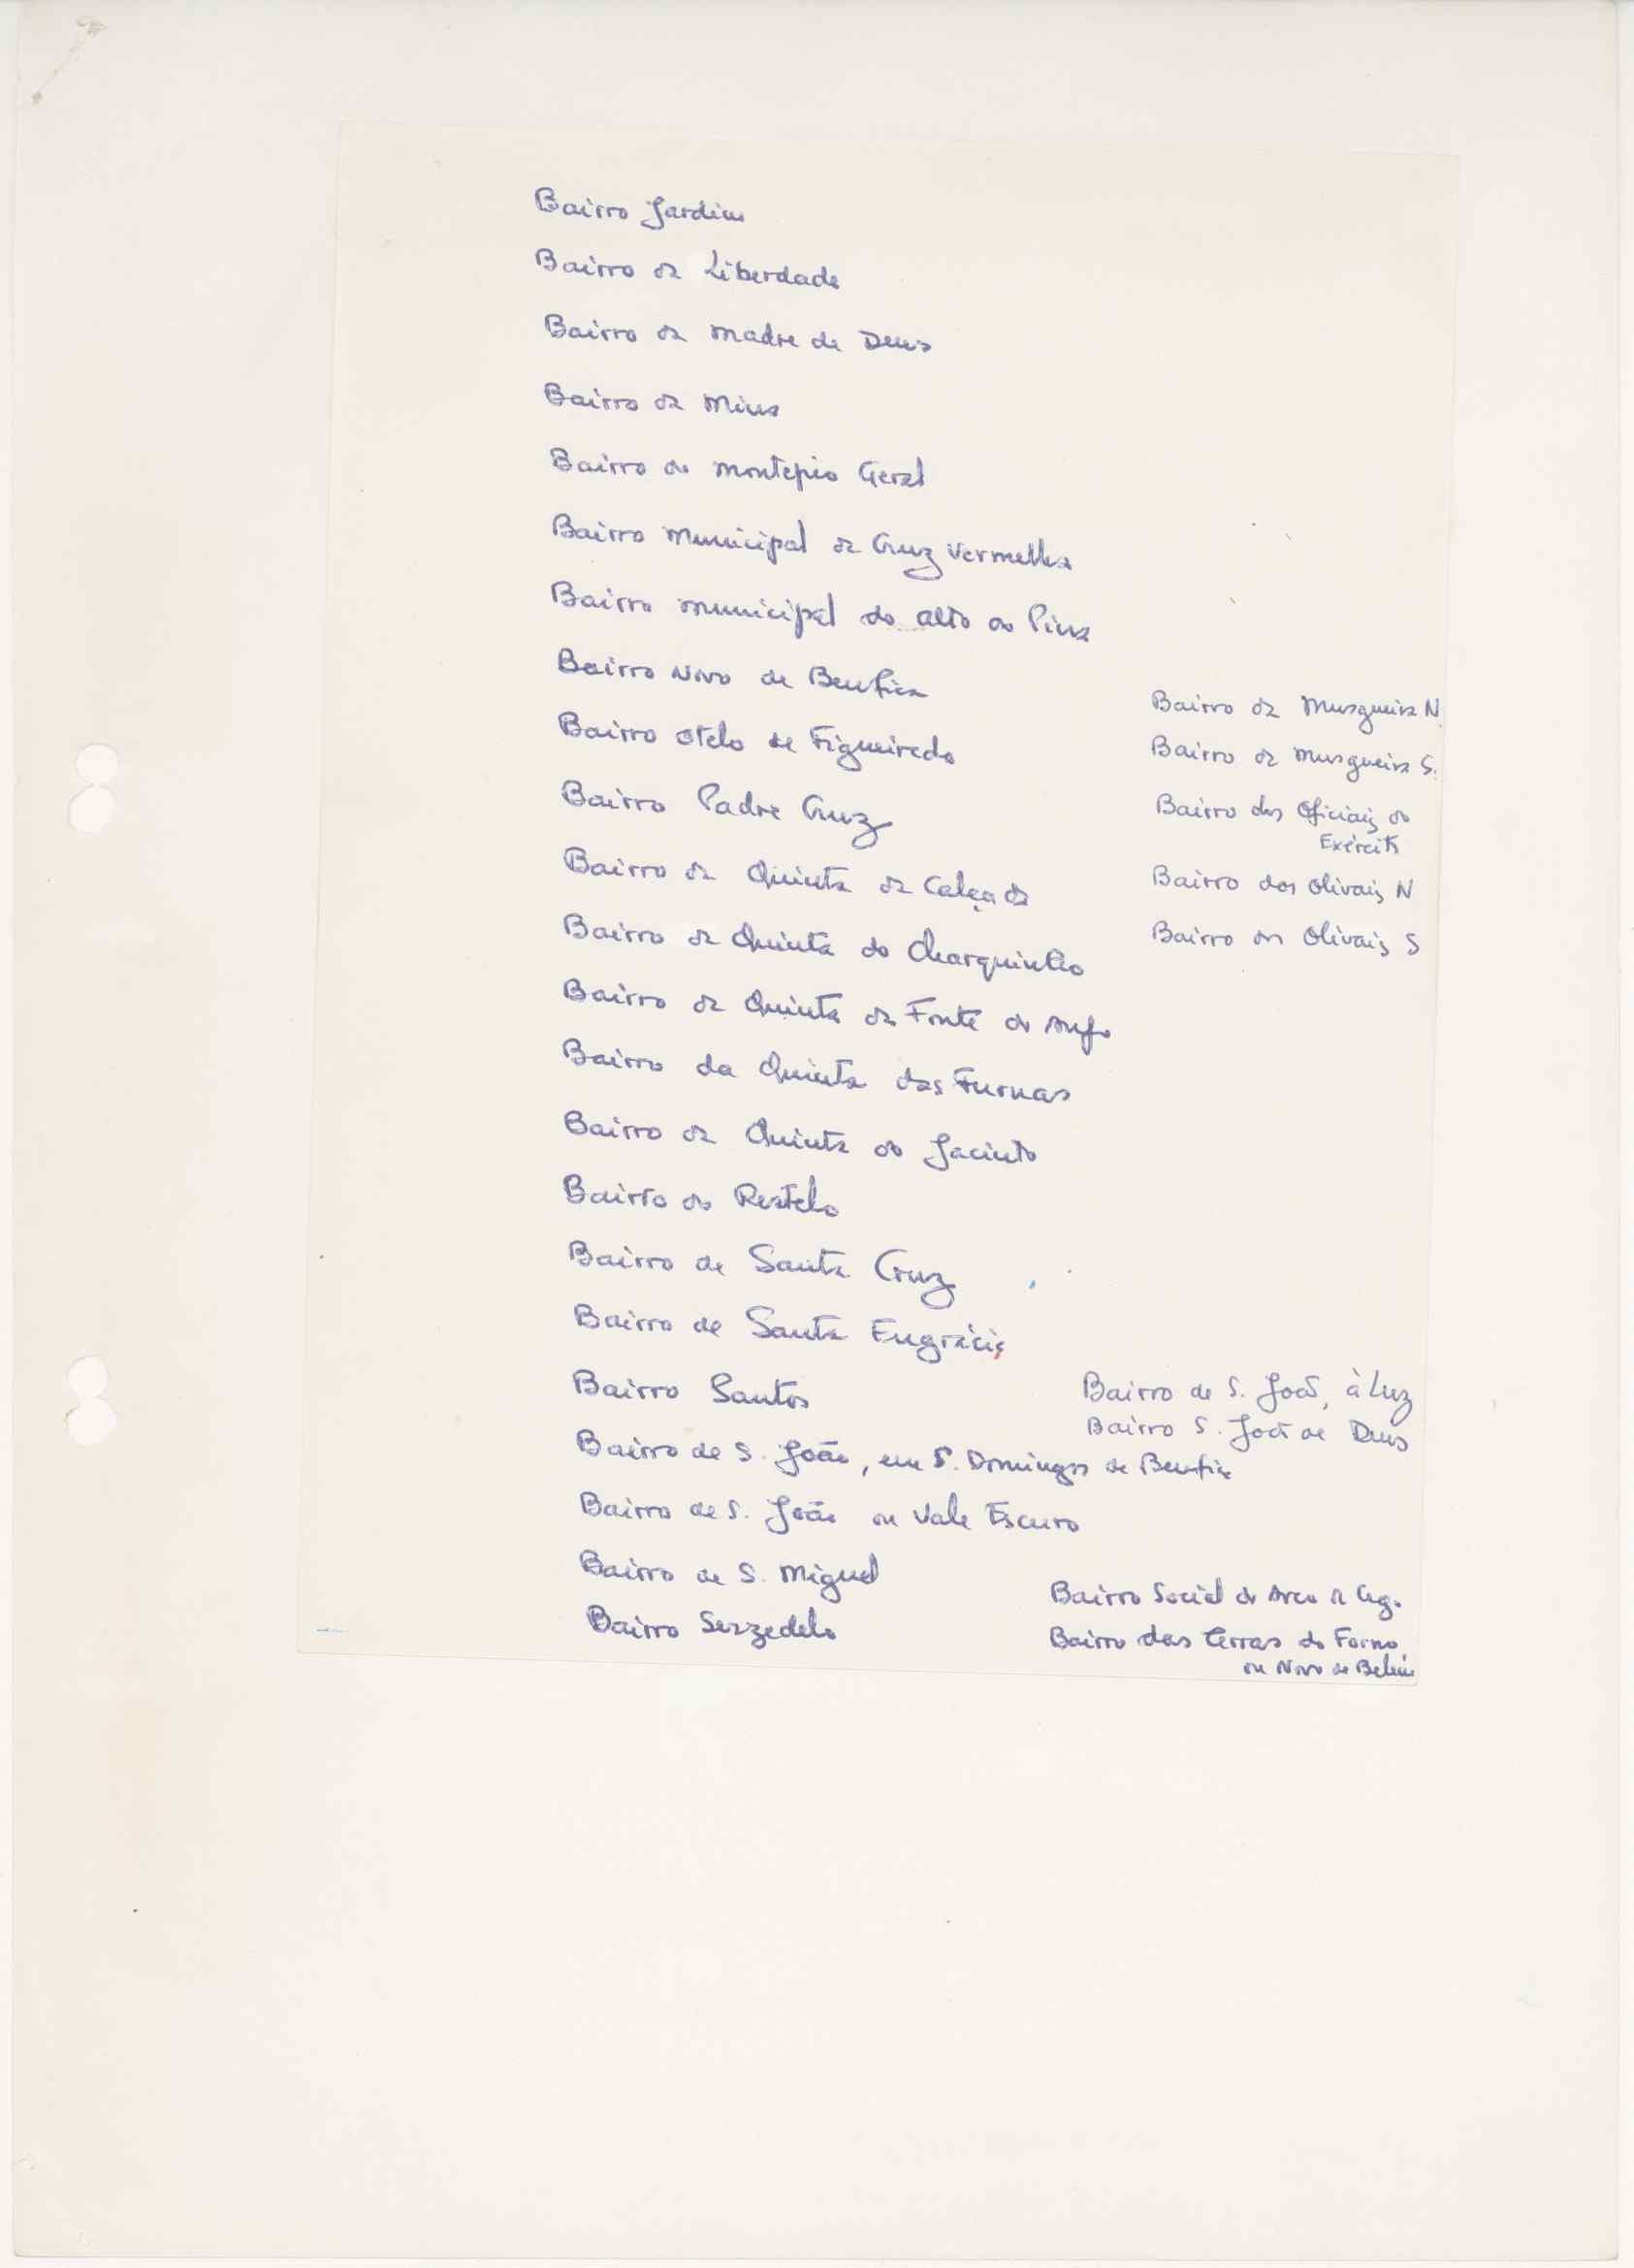 Bairro Jardim
Bairro da Liberdade
Bairro da Madre de Deus
Bairro da Mina
Bairro do Montepio Geral
Bairro Municipal da Cruz Vermelha
Bairro Municipal do Alto do Pina
Bairro Novo de Benfica
Bairro Otelo de Figueiredo
Bairro Padre Cruz
Bairro da Quinta da Calçada
Bairro da Quinta do Charquinho
Bairro da Quinta da Fonte do Anjo
Bairro da Quinta das Furnas
Bairro da Quinta do Jacinto
Bairro do Restelo
Bairro de Santa Cruz
Bairro de Santa Engrácia
Bairro Santos
Bairro de S. João, em S. Domingos de Benfica
Bairro de S. João ou Vale Escuro
Bairro de S. Miguel
Bairro Serzedelo
Bairro da Musgueira N.
Bairro da Musgueira S.
Bairro dos Oficiais do
Exército
Bairro dos Olivais N
Bairro dos Olivais S
Bairro de S. João, à Luz
Bairro S. João de Deus
Bairro Social do Arco do Cego
Bairro das Terras do Forno
ou Novo de Belém